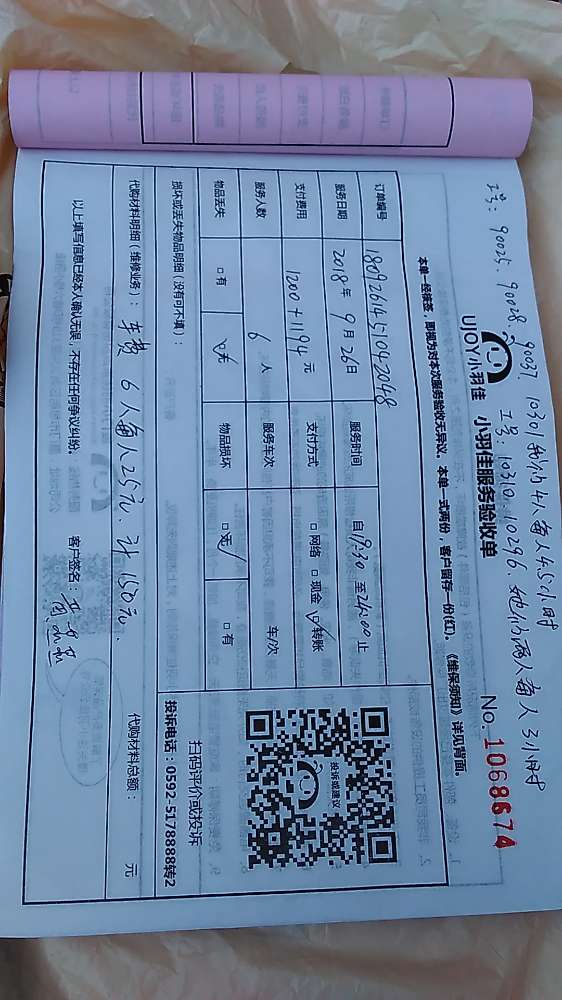 工号：90025、90028、90037、10301她们4人每人4.5小时
工号：10310、10296、她们两人每人3小时
UJOY小羽佳 小羽佳服务验收单
No. 1068674
本单一经接签，即视为对本次服务验收无异议。本单一式两份，客户留存一份(红)，《维保须知》详见背面。
订单编号 1809261451042048
服务日期 2018年9月26日 服务时间 自19:30至24:00止
支付费用 1200+1194元 支付方式 □网络 □现金 ☑转账
服务人数 6人 服务车次 车/次
物品丢失 □有 ☑无 物品损坏 □无✓ □有
投诉或建议
扫码评价或投诉
投诉电话：0592-5178888转2
损坏或丢失物品明细（没有可不填）：
代购材料明细（维修业务）：车费6人每人25元、计150元. 代购材料总额： 元
以上填写信息已经本人确认无误，不存在任何争议纠纷。 客户签名：